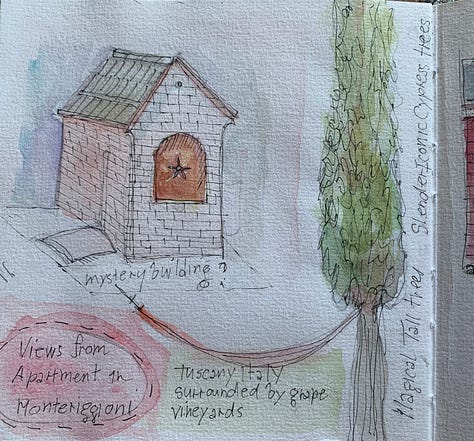 mystery building ?
Views from
Apartment in
Monteriggioni
Tuscany Italy
surrounded by grape
vineyards
Magical Tall trees Slender Iconic Cypress trees